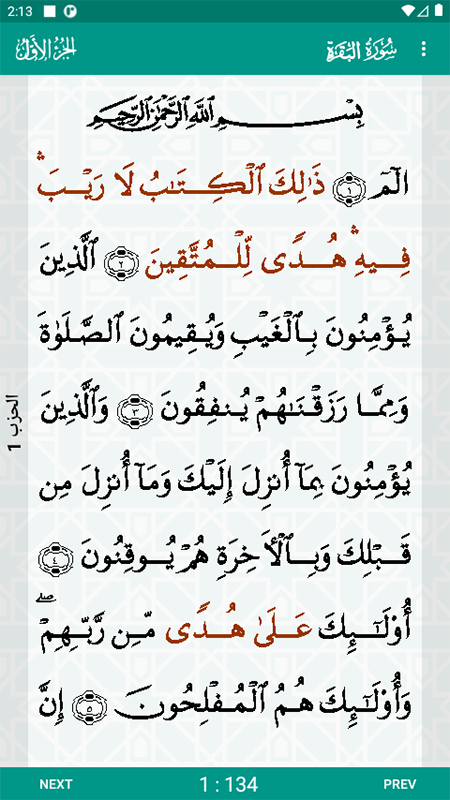 2:13
سُورَةُ البَقَرَة
الجُزءُ الأَوَّلُ
بِسْمِ ٱللَّهِ ٱلرَّحْمَٰنِ ٱلرَّحِيمِ
الٓمٓ ١ ذَٰلِكَ ٱلْكِتَٰبُ لَا رَيْبَ ۛ
فِيهِ ۛ هُدًى لِّلْمُتَّقِينَ ٢ ٱلَّذِينَ
يُؤْمِنُونَ بِٱلْغَيْبِ وَيُقِيمُونَ ٱلصَّلَوٰةَ
وَمِمَّا رَزَقْنَٰهُمْ يُنفِقُونَ ٣ وَٱلَّذِينَ
يُؤْمِنُونَ بِمَآ أُنزِلَ إِلَيْكَ وَمَآ أُنزِلَ مِن
قَبْلِكَ وَبِٱلْأَخِرَةِ هُمْ يُوقِنُونَ ٤
أُوْلَٰٓئِكَ عَلَىٰ هُدًى مِّن رَّبِّهِمْ ۖ
وَأُوْلَٰٓئِكَ هُمُ ٱلْمُفْلِحُونَ ٥ إِنَّ
الحزب 1
NEXT
1 : 134
PREV